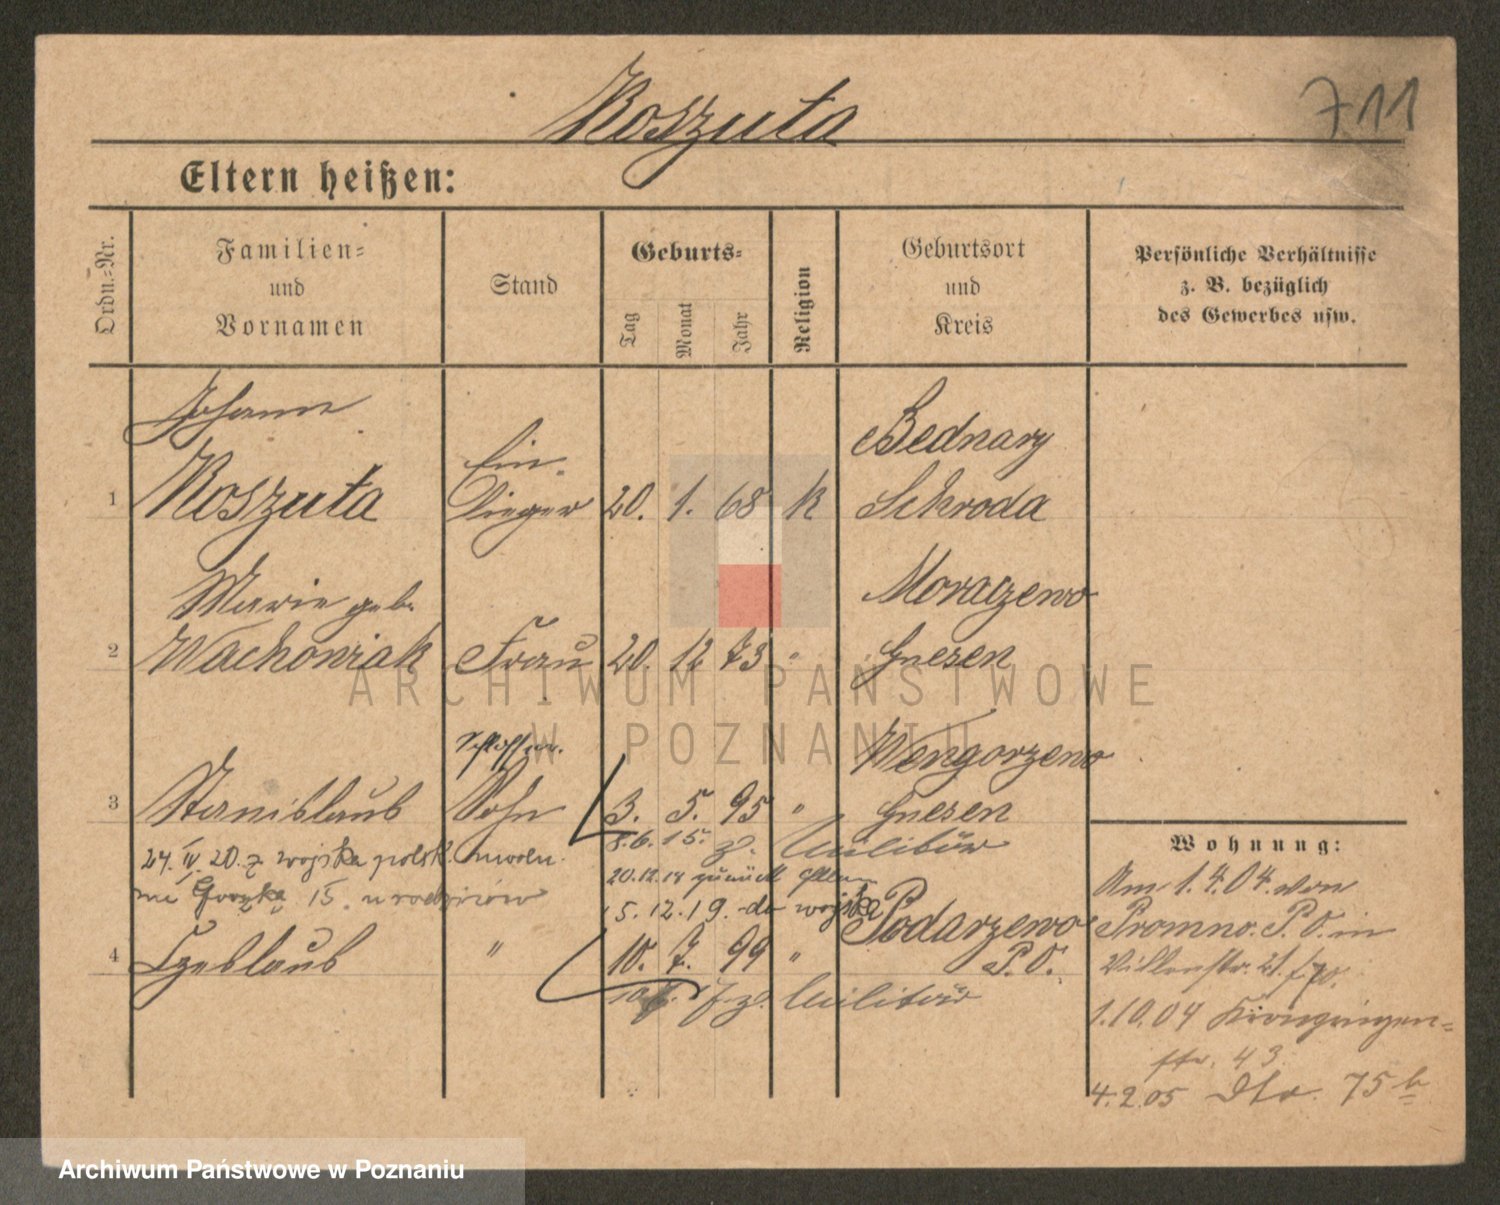 Koszuta
711
Eltern heißen:
Ordn.-Nr.
Familien-
und
Vornamen
Stand
Geburts-
Tag
Monat
Jahr
Religion
Geburtsort
und
Kreis
Persönliche Verhältnisse
z. B. bezüglich
des Gewerbes usw.
Johann
Ein-
Bednary
1 Koszuta lieger 20. 1. 68 k Schroda
Marie geb.
Moraczewo
2 Wachowiak Frau 20. 12 73 " Gnesen
Schlosser.
Wengorzewo
3 Stanislaus Sohn 3. 5. 95 " Gnesen
8.6.15. z. Militär
24. IV. 20. z wojska polsk.
20.12.18 zurück
15. u rodziców
15.12.19. do wojska
Podarzewo
4 Czeslaus " 10. 7. 99 " P.O.
z. Militär
Wohnung:
Am 1.4.04. von
Promno. P.O. in
1.10.04 Kronprinzen-
str. 43.
4.2.05 Dto. 75 b
ARCHIWUM PAŃSTWOWE
W POZNANIU
Archiwum Państwowe w Poznaniu